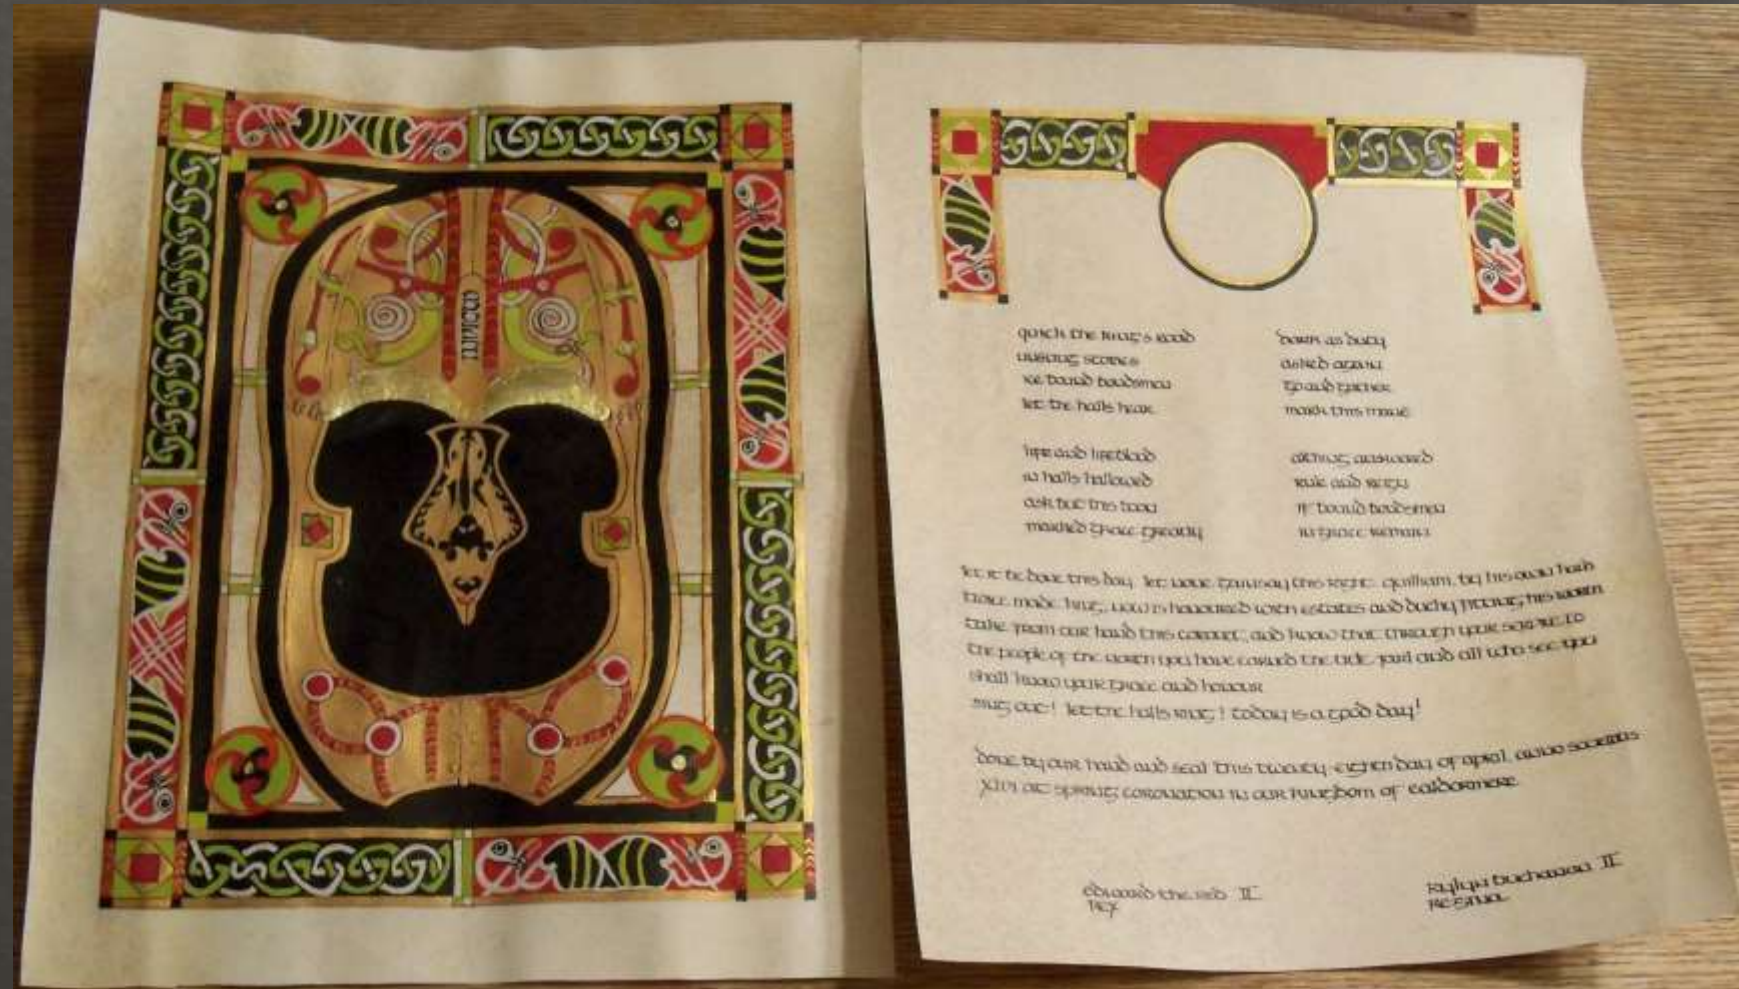 quick the king's road
kissing stones
we bound bondsmen
let the halls hear
life and lifeblood
in halls hallowed
ask but this boon
marked grace greatly
dark as duty
asked again
go and gather
mark this
answered
rule and reign
if bound bondsmen
in grace remain
let it be done this day. let none gainsay this right. by his own hand
twice made king, now is honoured with estates and duchy fitting his worth
take from our hand this coronet, and know that through your service to
the people of the north you have earned the title jarl and all who see you
shall know your grace and honour
sing out! let the halls ring! today is a good day!
done by our hand and seal this twenty-eighth day of april, anno societatis
XLVI at spring coronation in our kingdom of ealdormere
edward the red II
rex
rylyn buchanan II
regina